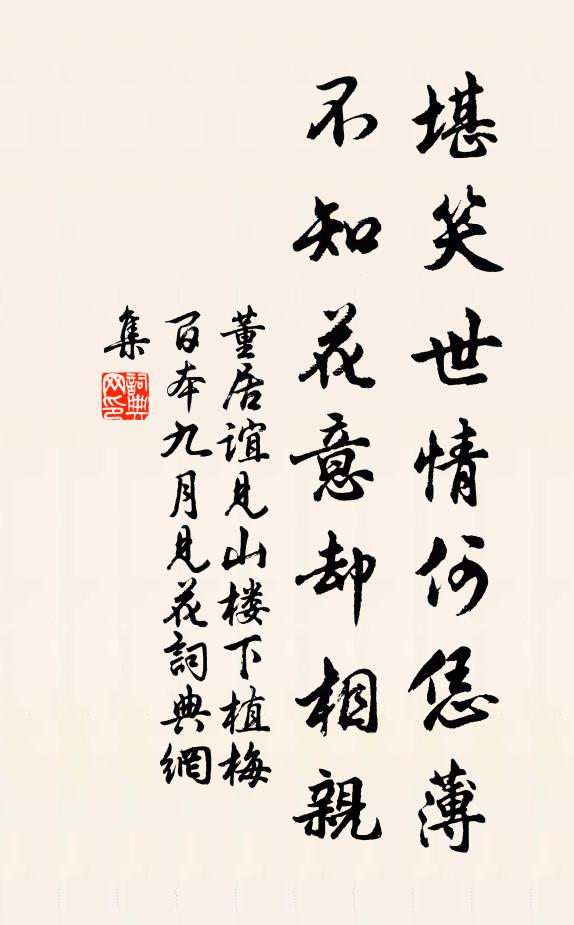 堪笑世情何恁薄
不知花意却相親
董居誼見山楼下植梅
百本九月見花詞典網
集
詞典
网印